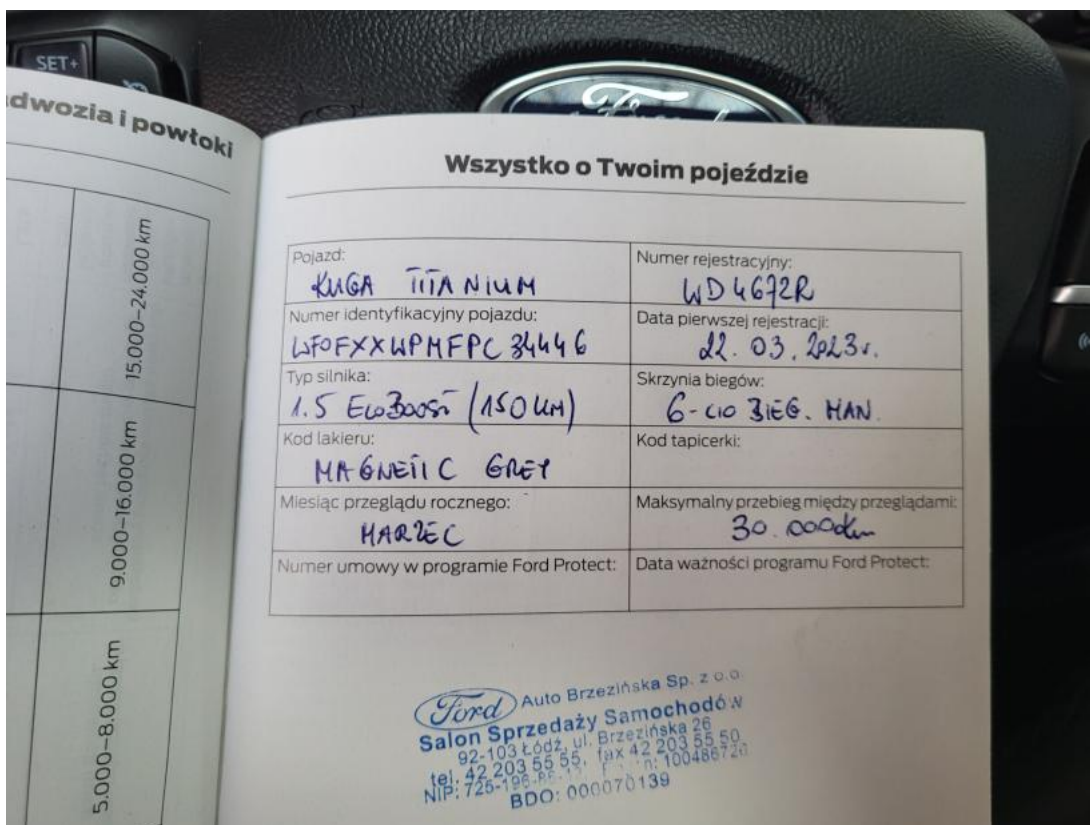 SET+
dwozia i powłoki
15.000–24.000 km
9.000–16.000 km
5.000–8.000 km
Ford
Wszystko o Twoim pojeździe
Pojazd:
KUGA TITANIUM
Numer rejestracyjny:
WD4672R
Numer identyfikacyjny pojazdu:
WF0FXXWPMFPC34446
Data pierwszej rejestracji:
22.03.2023r.
Typ silnika:
1.5 EcoBoost (150 KM)
Skrzynia biegów:
6-cio BIEG. MAN.
Kod lakieru:
MAGNETIC GREY
Kod tapicerki:
Miesiąc przeglądu rocznego:
MARZEC
Maksymalny przebieg między przeglądami:
30.000km
Numer umowy w programie Ford Protect:
Data ważności programu Ford Protect:
Ford Auto Brzezińska Sp. z o.o.
Salon Sprzedaży Samochodów
92-103 Łódź, ul. Brzezińska 26
tel. 42 203 55 55, fax 42 203 55 50
NIP: 725-196-
BDO: 000070139